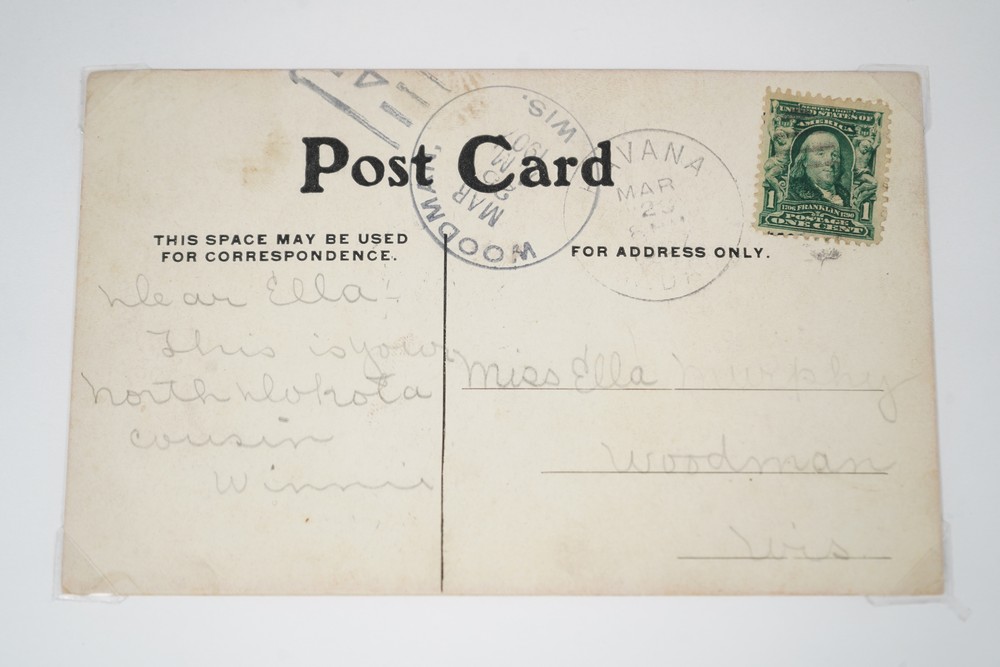 Post Card
THIS SPACE MAY BE USED
FOR CORRESPONDENCE.
FOR ADDRESS ONLY.
WOODMAN,
WIS.
MAR
25
M
1907
AVANA
MAR
23
UNITED STATES OF
AMERICA
1790 FRANKLIN 1790
1 POSTAGE 1
ONE CENT
Dear Ella:
This is your
North Dakota
cousin
Winnie
Miss Ella Murphy
Woodman
Wis